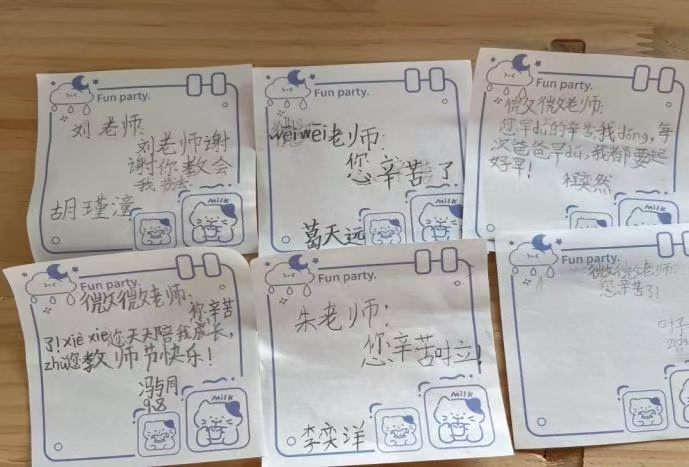 Fun party.
刘老师:
刘老师谢
谢你教会
我
胡瑾潼
MILK
Fun party.
weiwei老师:
您辛苦了
葛天远
Fun party.
微微老师:
您早dú的辛苦我dǒng,每
次爸爸早dú,我都要起
好早!
程奕然
MILK
Fun party.
微微老师:
您辛苦
了!xiè xie您天天陪我成长,
zhù您教师节快乐!
冯与同
9.8
MILK
Fun party.
朱老师:
您辛苦啦!
李奕洋
MILK
Fun party.
微微老师:
您辛苦了!
叶子